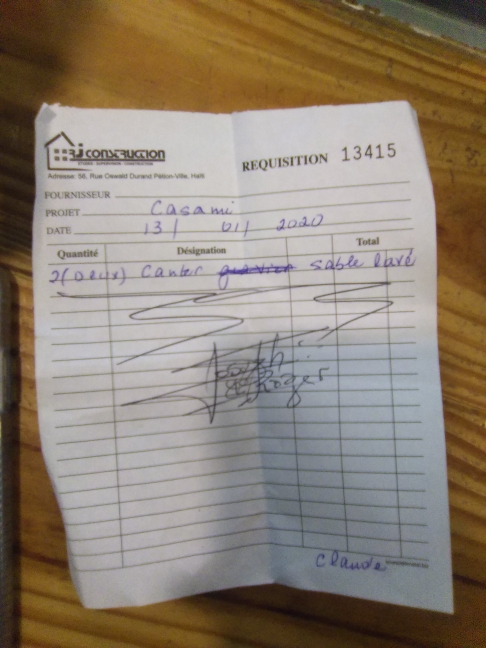 RJ CONSTRUCTION
ETUDE SUPERVISION CONSTRUCTION
Adresse: 56, Rue Oswald Durand Pétion-Ville, Haïti
REQUISITION 13415
FOURNISSEUR
PROJET Casami
DATE 13 / 01 / 2020
Quantité Désignation Total
2 (Deux) Canter gravier sable lavé
Joseph
Roger
Claude